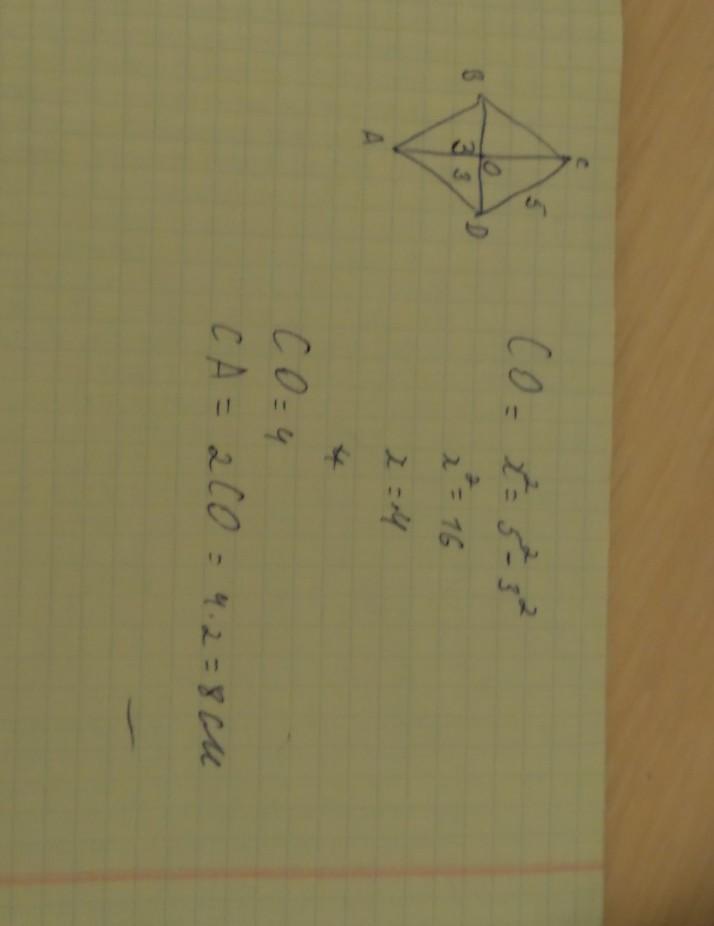 B
C
A
3
O
3
5
D
CO = x² = 5² - 3²
x² = 16
x = 4
4
CO = 4
CA = 2CO = 4 · 2 = 8 см